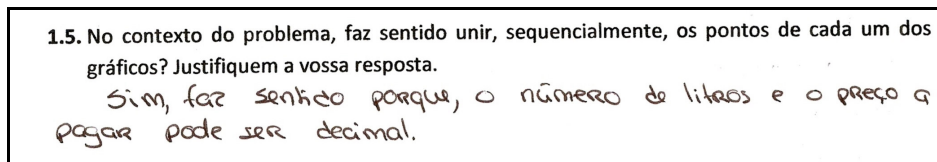 1.5. No contexto do problema, faz sentido unir, sequencialmente, os pontos de cada um dos
gráficos? Justifiquem a vossa resposta.
Sim, faz sentido porque, o número de litros e o preço a
pagar pode ser decimal.